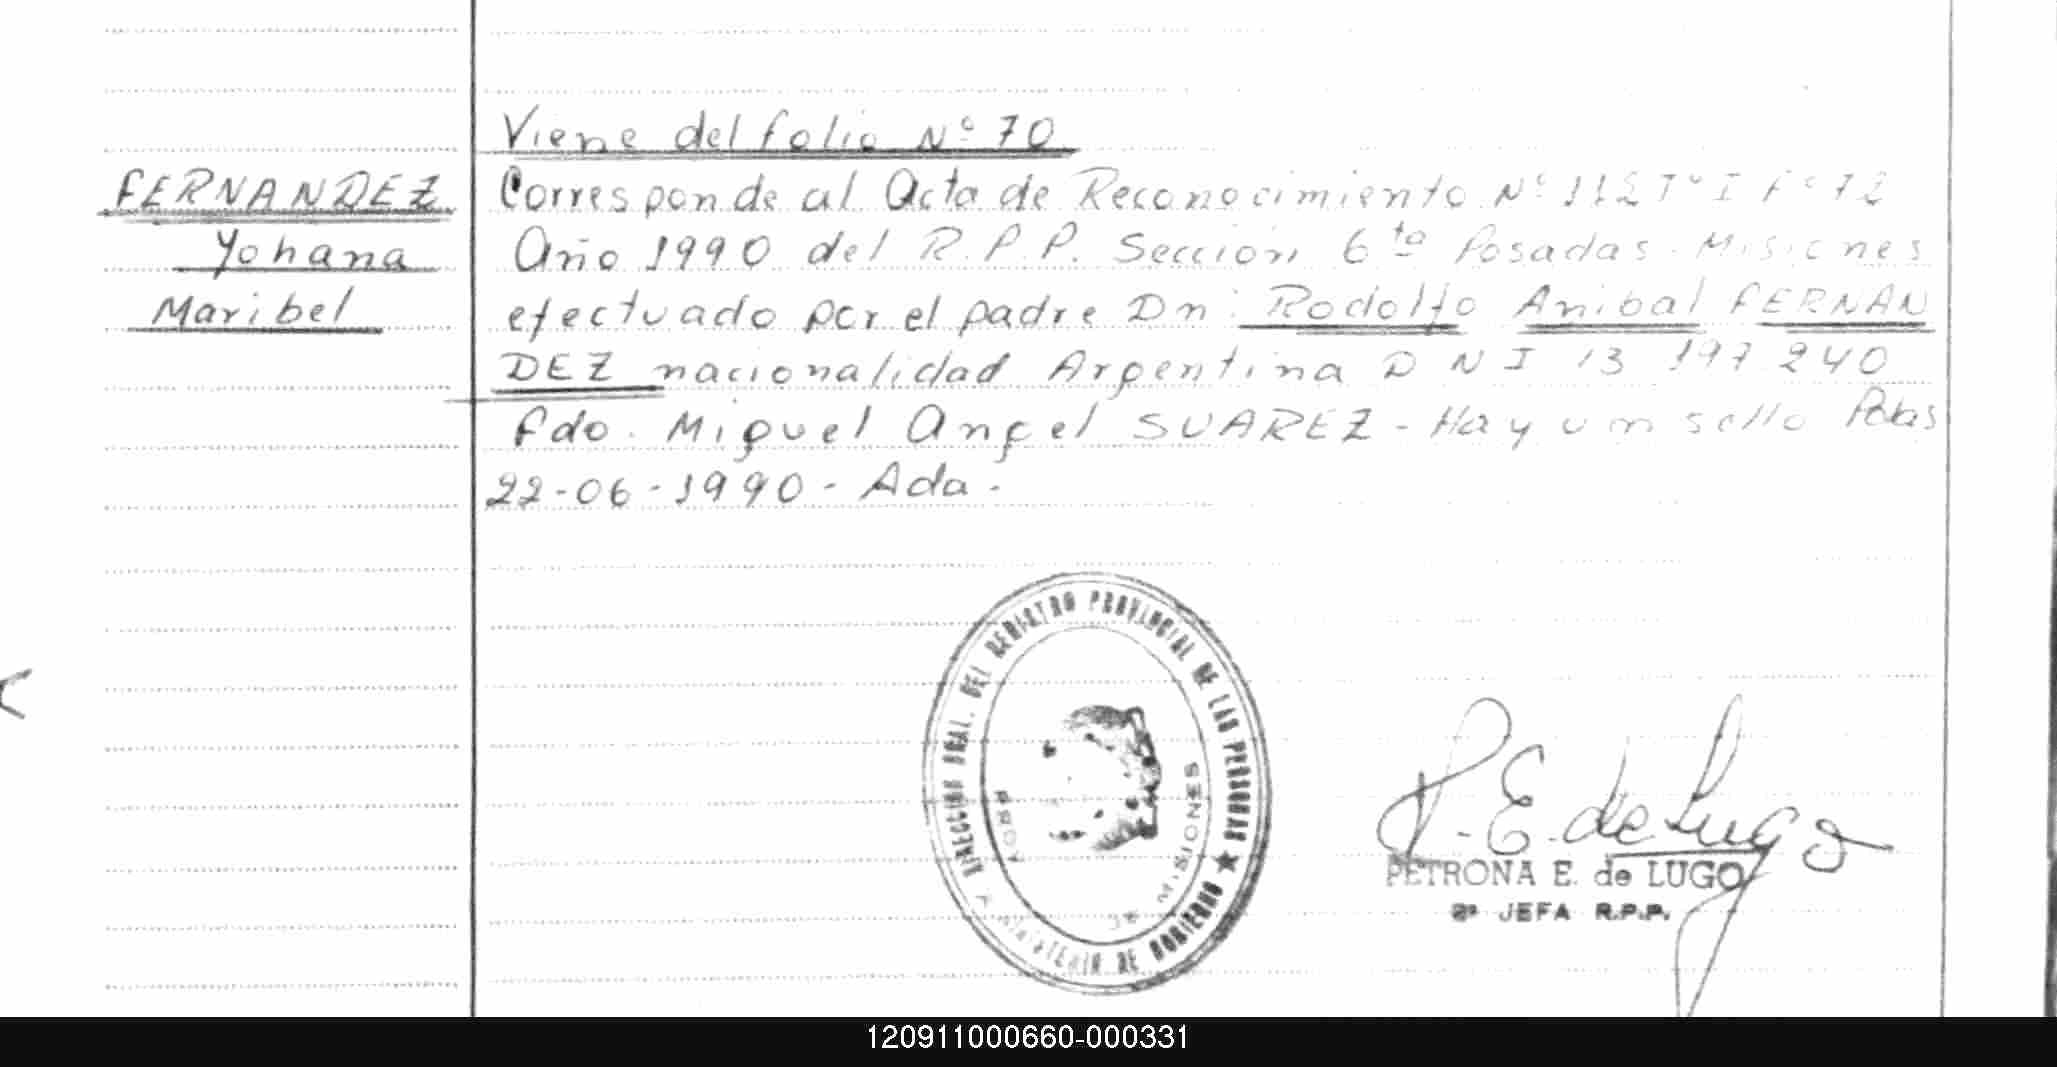 Viene del folio Nº 70
FERNANDEZ
Yohana
Maribel
Corresponde al Acta de Reconocimiento Nº 112 Tº I Fº 72
Año 1990 del R.P.P. Sección 6ta Posadas - Misiones
efectuado por el padre Dn: Rodolfo Anibal FERNAN
DEZ nacionalidad Argentina D N I 13 197 240
Fdo. Miguel Angel SUAREZ - Hay un sello Pdas
22-06-1990 - Ada.
DIRECCION GRAL. DEL REGISTRO PROVINCIAL DE LAS PERSONAS ★
MINISTERIO DE GOBIERNO
PROV.
DE MISIONES
P. E. de Lugo
PETRONA E. de LUGO
2ª JEFA R.P.P.
120911000660-000331